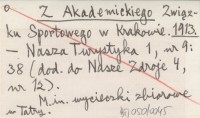 Z Akademickiego Związ-
ku Sportowego w Krakowie. 1913.
— Nasza Turystyka 1, nr 9:
38 (dod. do Nasze Zdroje 4,
nr 12).
M.in. wycieczki zbiorowe
w Tatry.